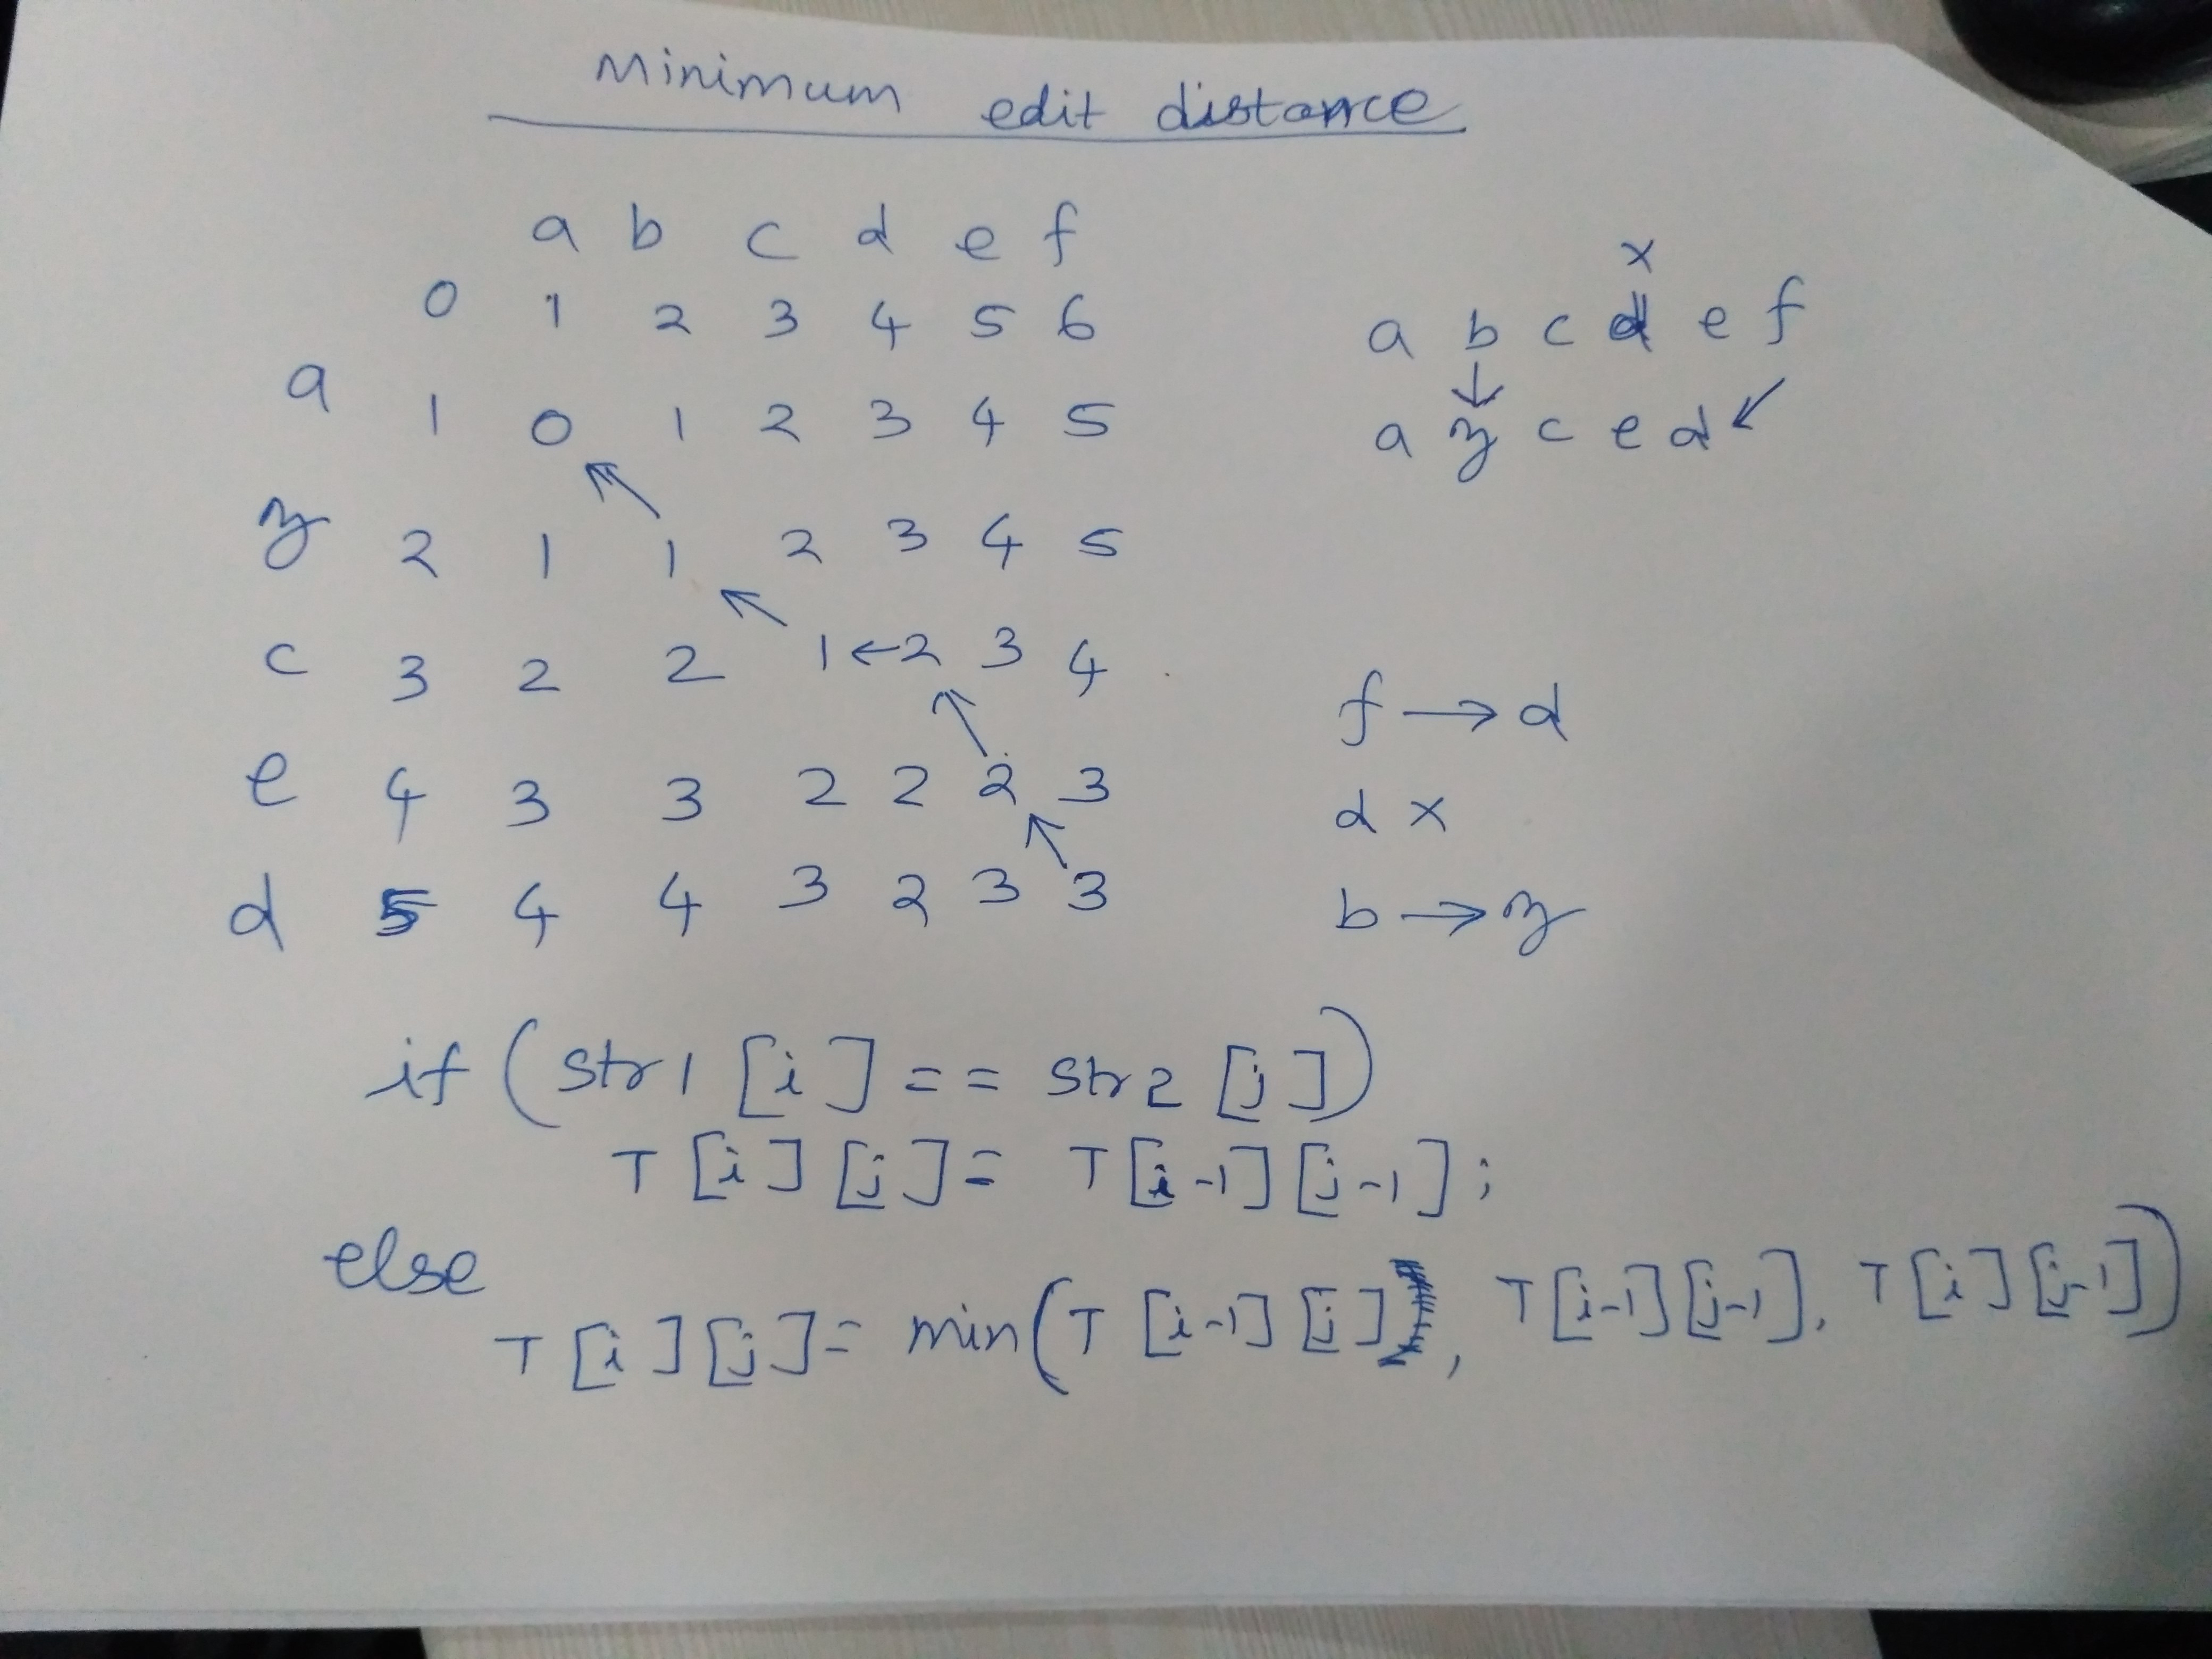 Minimum edit distance
a b c d e f
0 1 2 3 4 5 6
a 1 0 1 2 3 4 5
z 2 1 1 2 3 4 5
c 3 2 2 1 ← 2 3 4
e 4 3 3 2 2 2 3
d 5 4 4 3 2 3 3
x
a b c d e f
a z c e d
f → d
d x
b → z
if (str1 [i] == str2 [j])
T [i] [j] = T [i-1] [j-1];
else
T [i] [j] = min(T [i-1] [j], T [i-1] [j-1], T [i] [j-1])